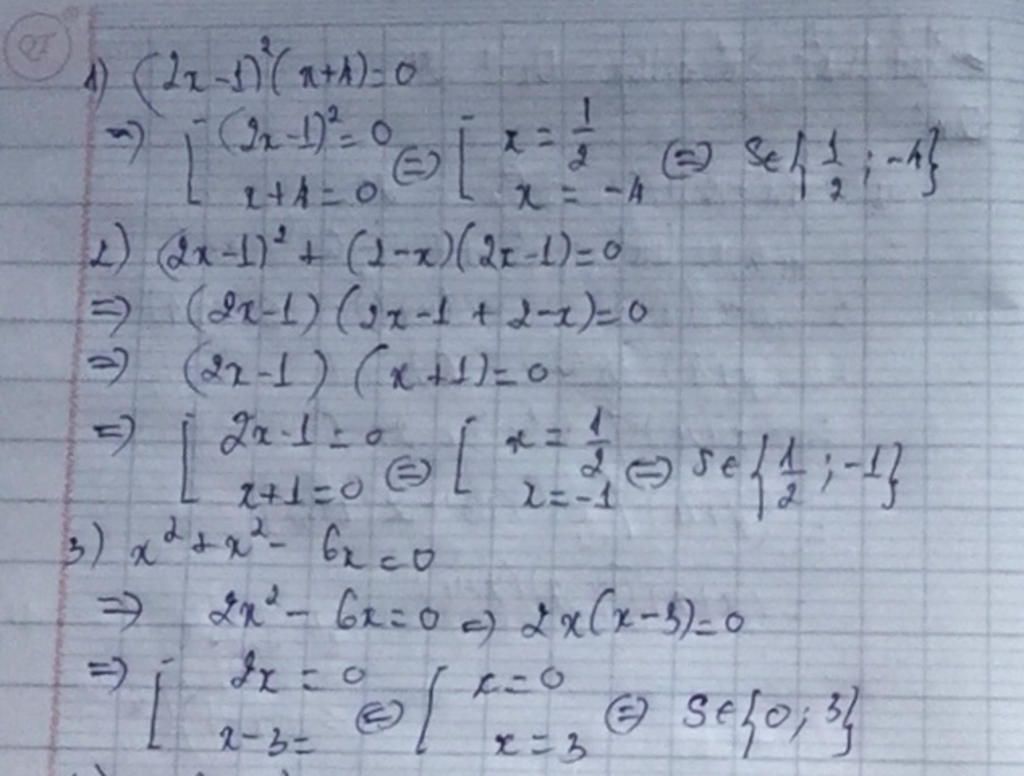 1) (2x-1)²(x+1)=0
=> [ (2x-1)²=0 <=> [ x = 1/2 <=> S∈{1/2 ; -1}
x+1=0 x = -1
2) (2x-1)² + (2-x)(2x-1)=0
=> (2x-1)(2x-1+2-x)=0
=> (2x-1)(x+1)=0
=> [ 2x-1=0 <=> [ x = 1/2 <=> S∈{1/2 ; -1}
x+1=0 x=-1
3) x²+x²-6x=0
=> 2x²-6x=0 => 2x(x-3)=0
=> [ 2x=0 <=> [ x=0 <=> S∈{0; 3}
x-3= x=3